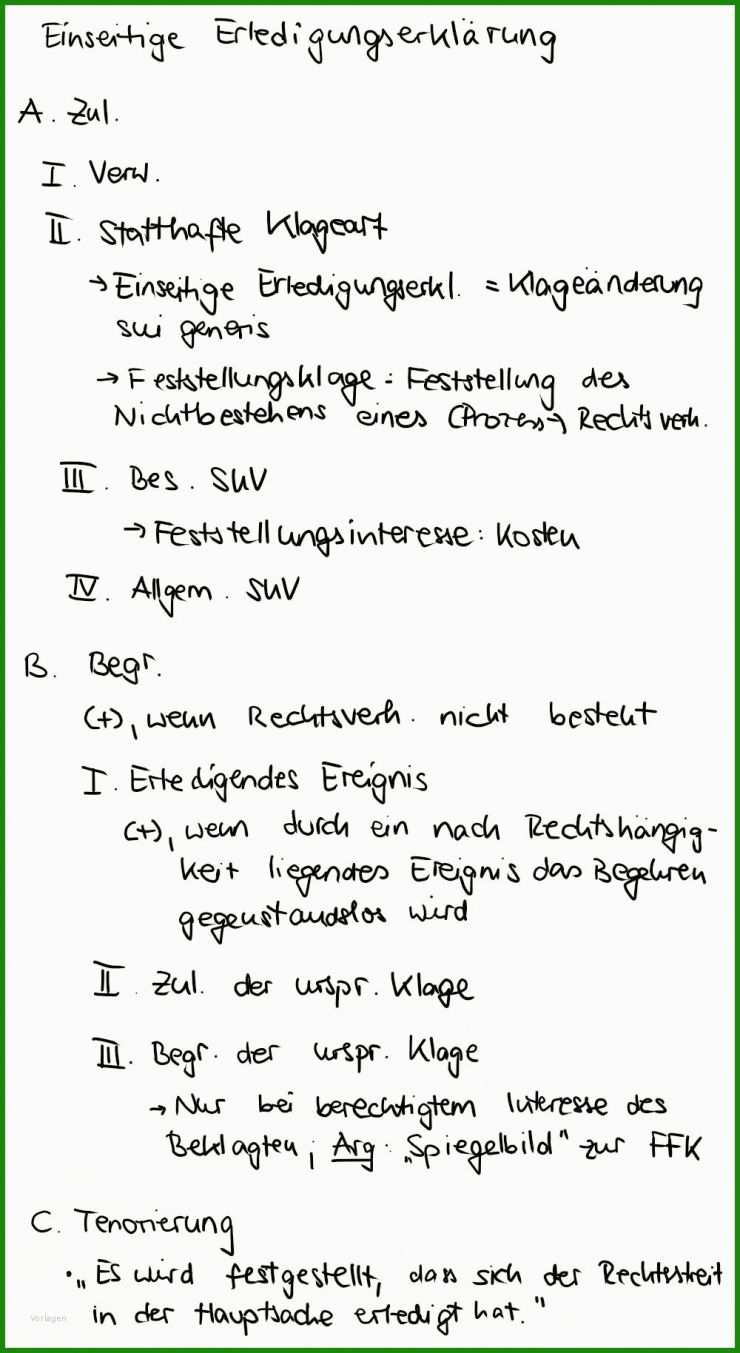 Einseitige Erledigungserklärung
A. Zul.
I. Verw.
II. Statthafte Klageart
→ Einseitige Erledigungserkl. = Klageänderung
sui generis
→ Feststellungsklage: Feststellung des
Nichtbestehens eines (Prozess-) Rechtsverh.
III. Bes. SUV
→ Feststellungsinteresse: Kosten
IV. Allgem. SUV
B. Begr.
(+), wenn Rechtsverh. nicht besteht
I. Erledigendes Ereignis
(+), wenn durch ein nach Rechtshängig-
keit liegendes Ereignis das Begehren
gegenstandslos wird
II. Zul. der urspr. Klage
III. Begr. der urspr. Klage
→ Nur bei berechtigtem Interesse des
Beklagten; Arg.: „Spiegelbild" zur FFK
C. Tenorierung
• „Es wird festgestellt, dass sich der Rechtsstreit
in der Hauptsache erledigt hat."
Vorlagen